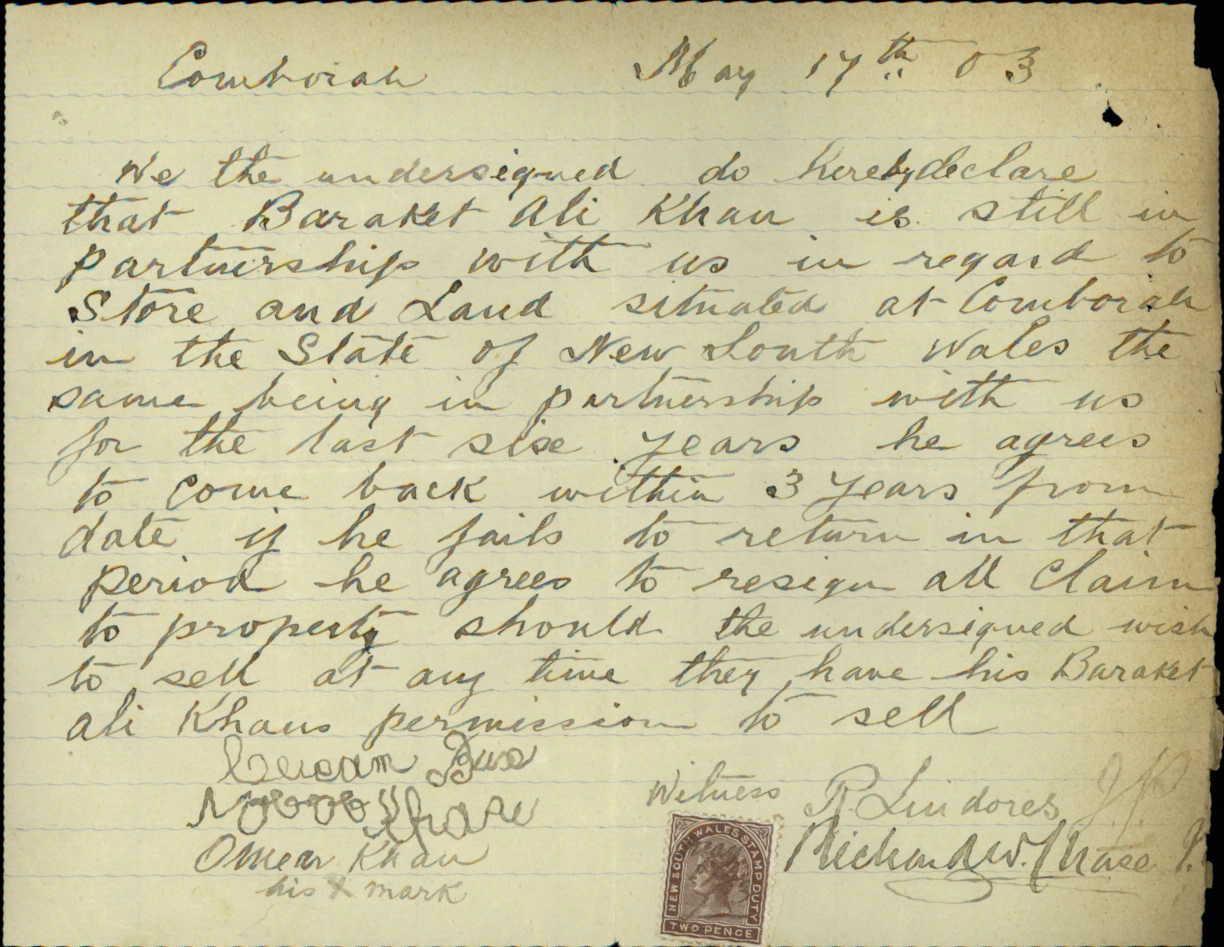 Comborah May 17th 03
We the undersigned do hereby declare
that Baraket Ali Khan is still in
partnership with us in regard to
Store and Land situated at Comborah
in the State of New South Wales the
same being in partnership with us
for the last six years he agrees
to come back within 3 years from
date if he fails to return in that
period he agrees to resign all Claim
to property should the undersigned wish
to sell at any time they have his Baraket
Ali Khans permission to sell
Witness R. Lindores J.P.
Richard W. Chase
Omear Khan
his X mark
NEW SOUTH WALES STAMP DUTY
TWO PENCE